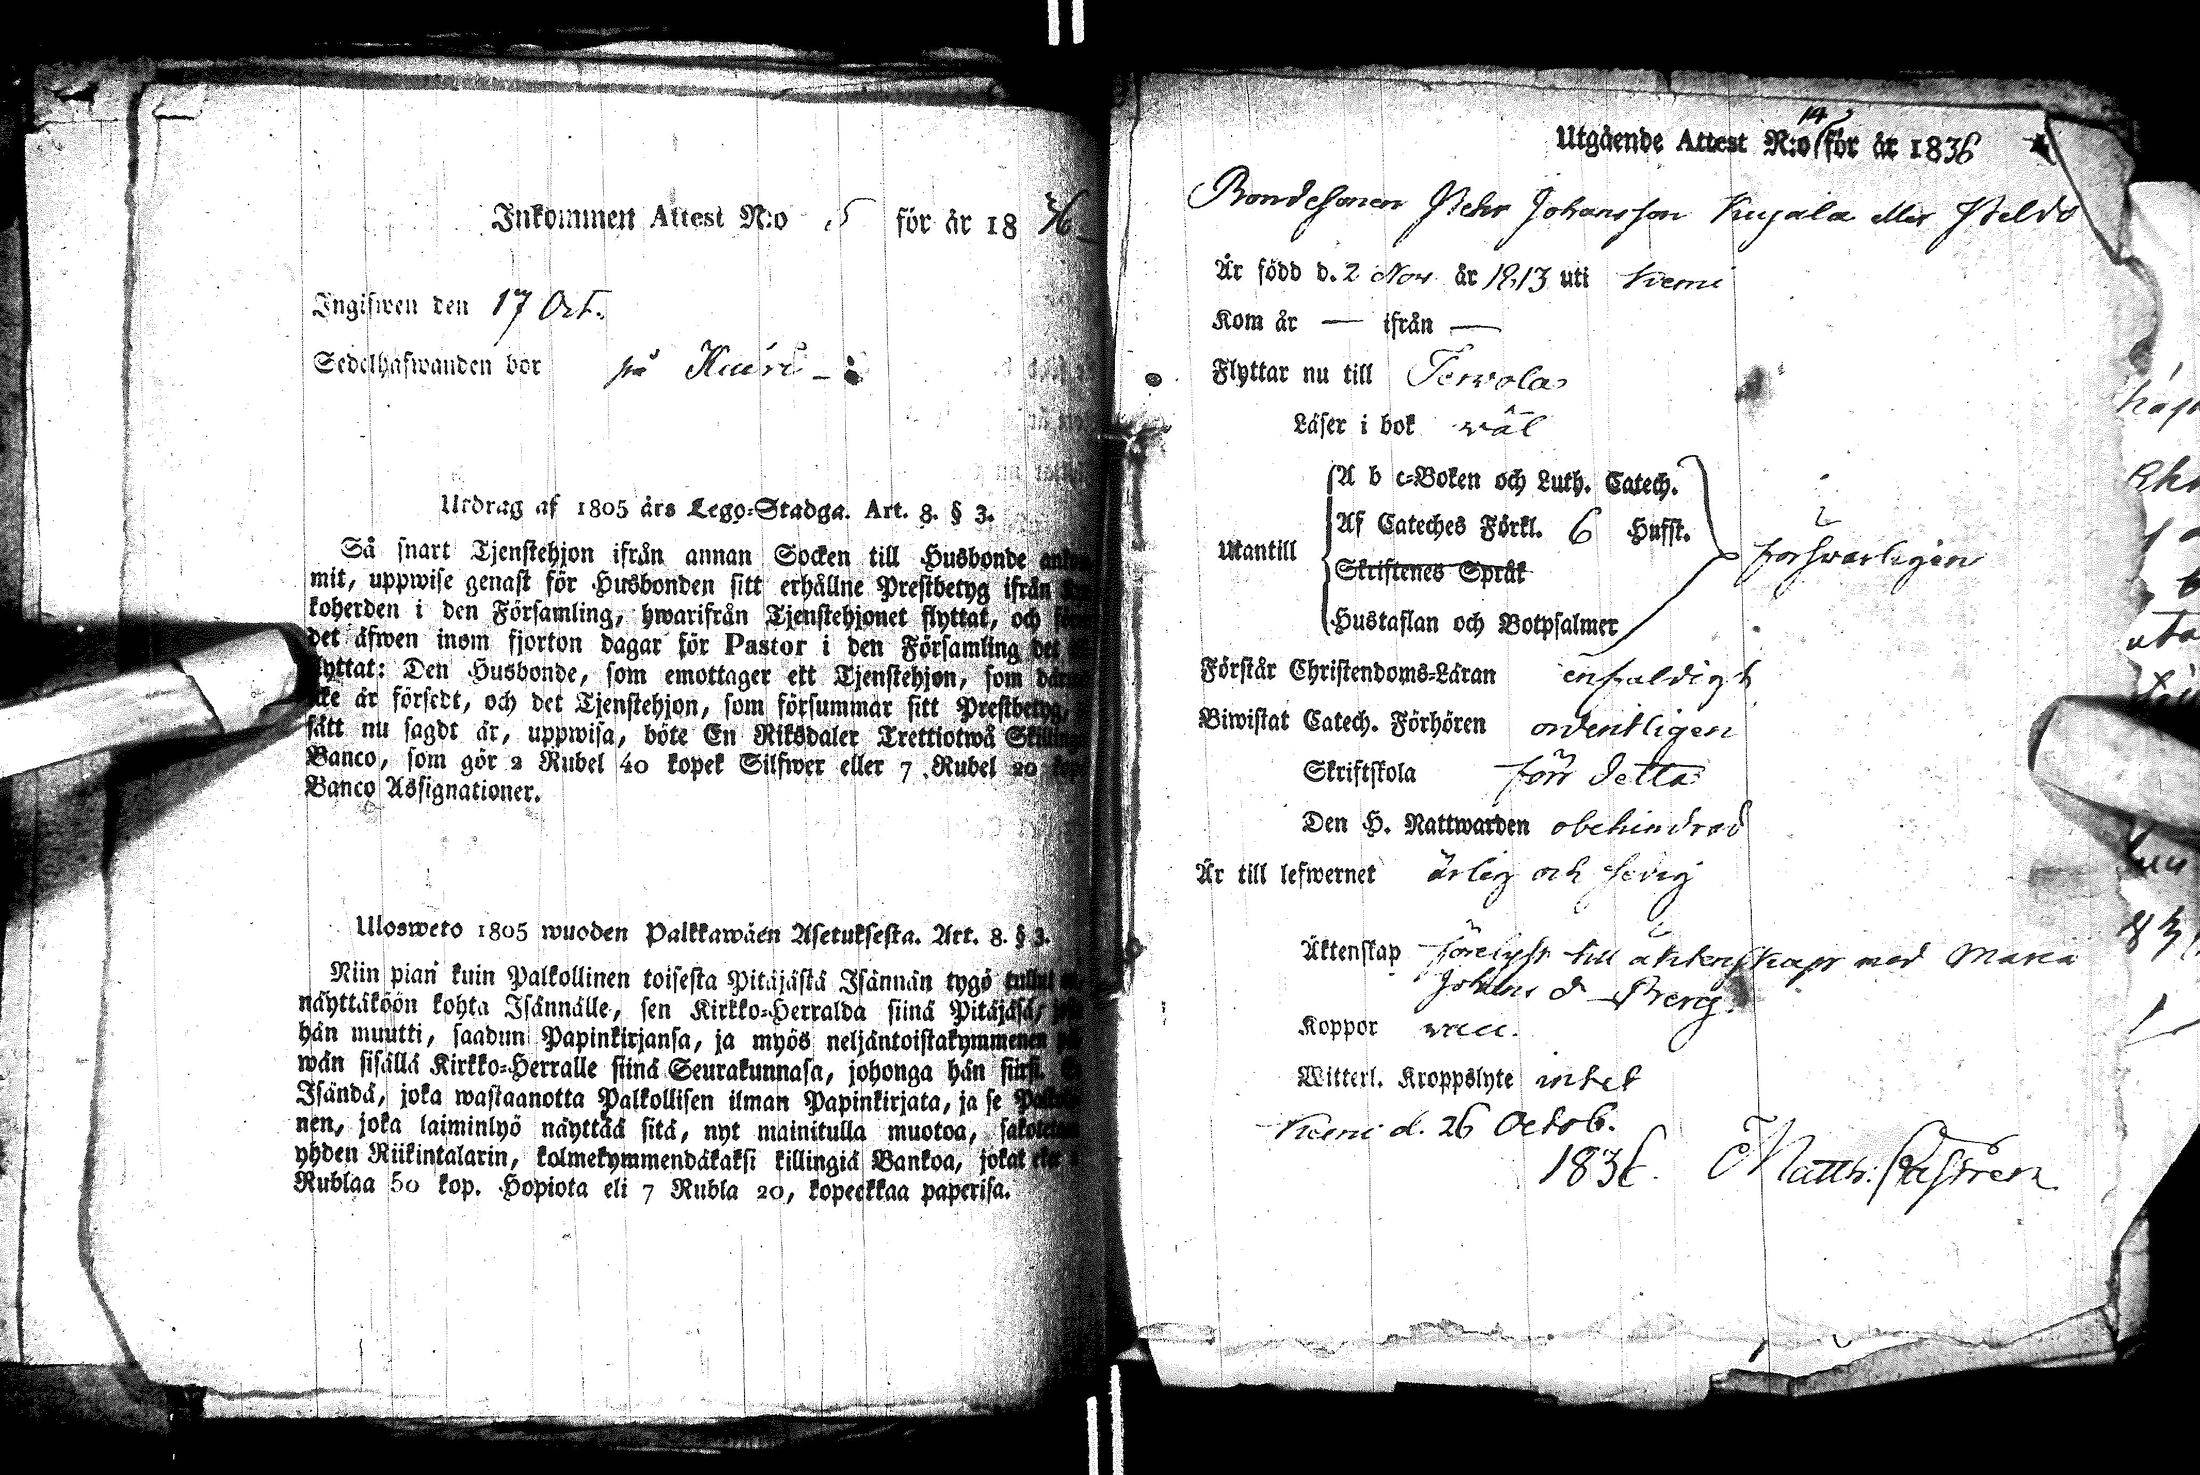 Inkommen Attest N:o 5 för år 1836
Ingifwen den 17 Oct.
Sedelhafwanden bor på
Utdrag af 1805 års Lego-Stadga. Art. 8. § 3.
Så snart Tjenstehjon ifrån annan Socken till Husbonde
mit, uppwise genast för Husbonden sitt erhållne Prestbetyg ifrån
koherden i den Församling, hwarifrån Tjenstehjonet flyttat, och
det äfwen inom fjorton dagar för Pastor i den Församling det
flyttat: Den Husbonde, som emottager ett Tjenstehjon, som
icke är försedt, och det Tjenstehjon, som försummar sitt Prestbetyg,
sätt nu sagdt är, uppwisa, böte En Riksdaler Trettiotwå Skillingar
Banco, som gör 2 Rubel 40 kopek Silfwer eller 7 Rubel 20 kopek
Banco Assignationer.
Ulosweto 1805 wuoden Palkkawäen Asetuksesta. Art. 8. § 3.
Niin pian kuin Palkollinen toisesta Pitäjästä Isännän tygö tullut
näyttäköön kohta Isännälle, sen Kirkko-Herralda siinä Pitäjäsä,
hän muutti, saadun Papinkirjansa, ja myös neljäntoistakymmenen
wän sisällä Kirkko-Herralle siinä Seurakunnasa, johonga hän
Isändä, joka wastaanotta Palkollisen ilman Papinkirjata, ja se
nen, joka laiminlyö näyttää sitä, nyt mainitulla muotoa,
yhden Riikintalarin, kolmekymmendäkaksi killingiä Bankoa, jokat
Rublaa 50 kop. Hopiota eli 7 Rubla 20, kopeekkaa paperisa.
Utgående Attest N:o 14 för år 1836
Bondesonen Pehr Johansson Kujala eller Peldo
Är född d. 2 Nov år 1813 uti Kemi
Kom år — ifrån —
Flyttar nu till Terwola
Läser i bok wäl
A b c-Boken och Luth. Catech.
Af Cateches Förkl. 6 Hufst.
Utantill
försvarligen
Skriftenes Språk
Hustaflan och Botpsalmer
Förstår Christendoms-Läran enfaldigt
Biwistat Catech. Förhören ordentligen
Skriftskola förr detta
Den H. Nattwarden obehindrad
Är till lefwernet ärlig och sedig
Äktenskap förelyst till äktenskap med Maria
Johans d Berg.
Koppor wacc.
Witterl. Kroppslyte intet
Kemi d. 26 Octob.
1836. Matth. Castrén